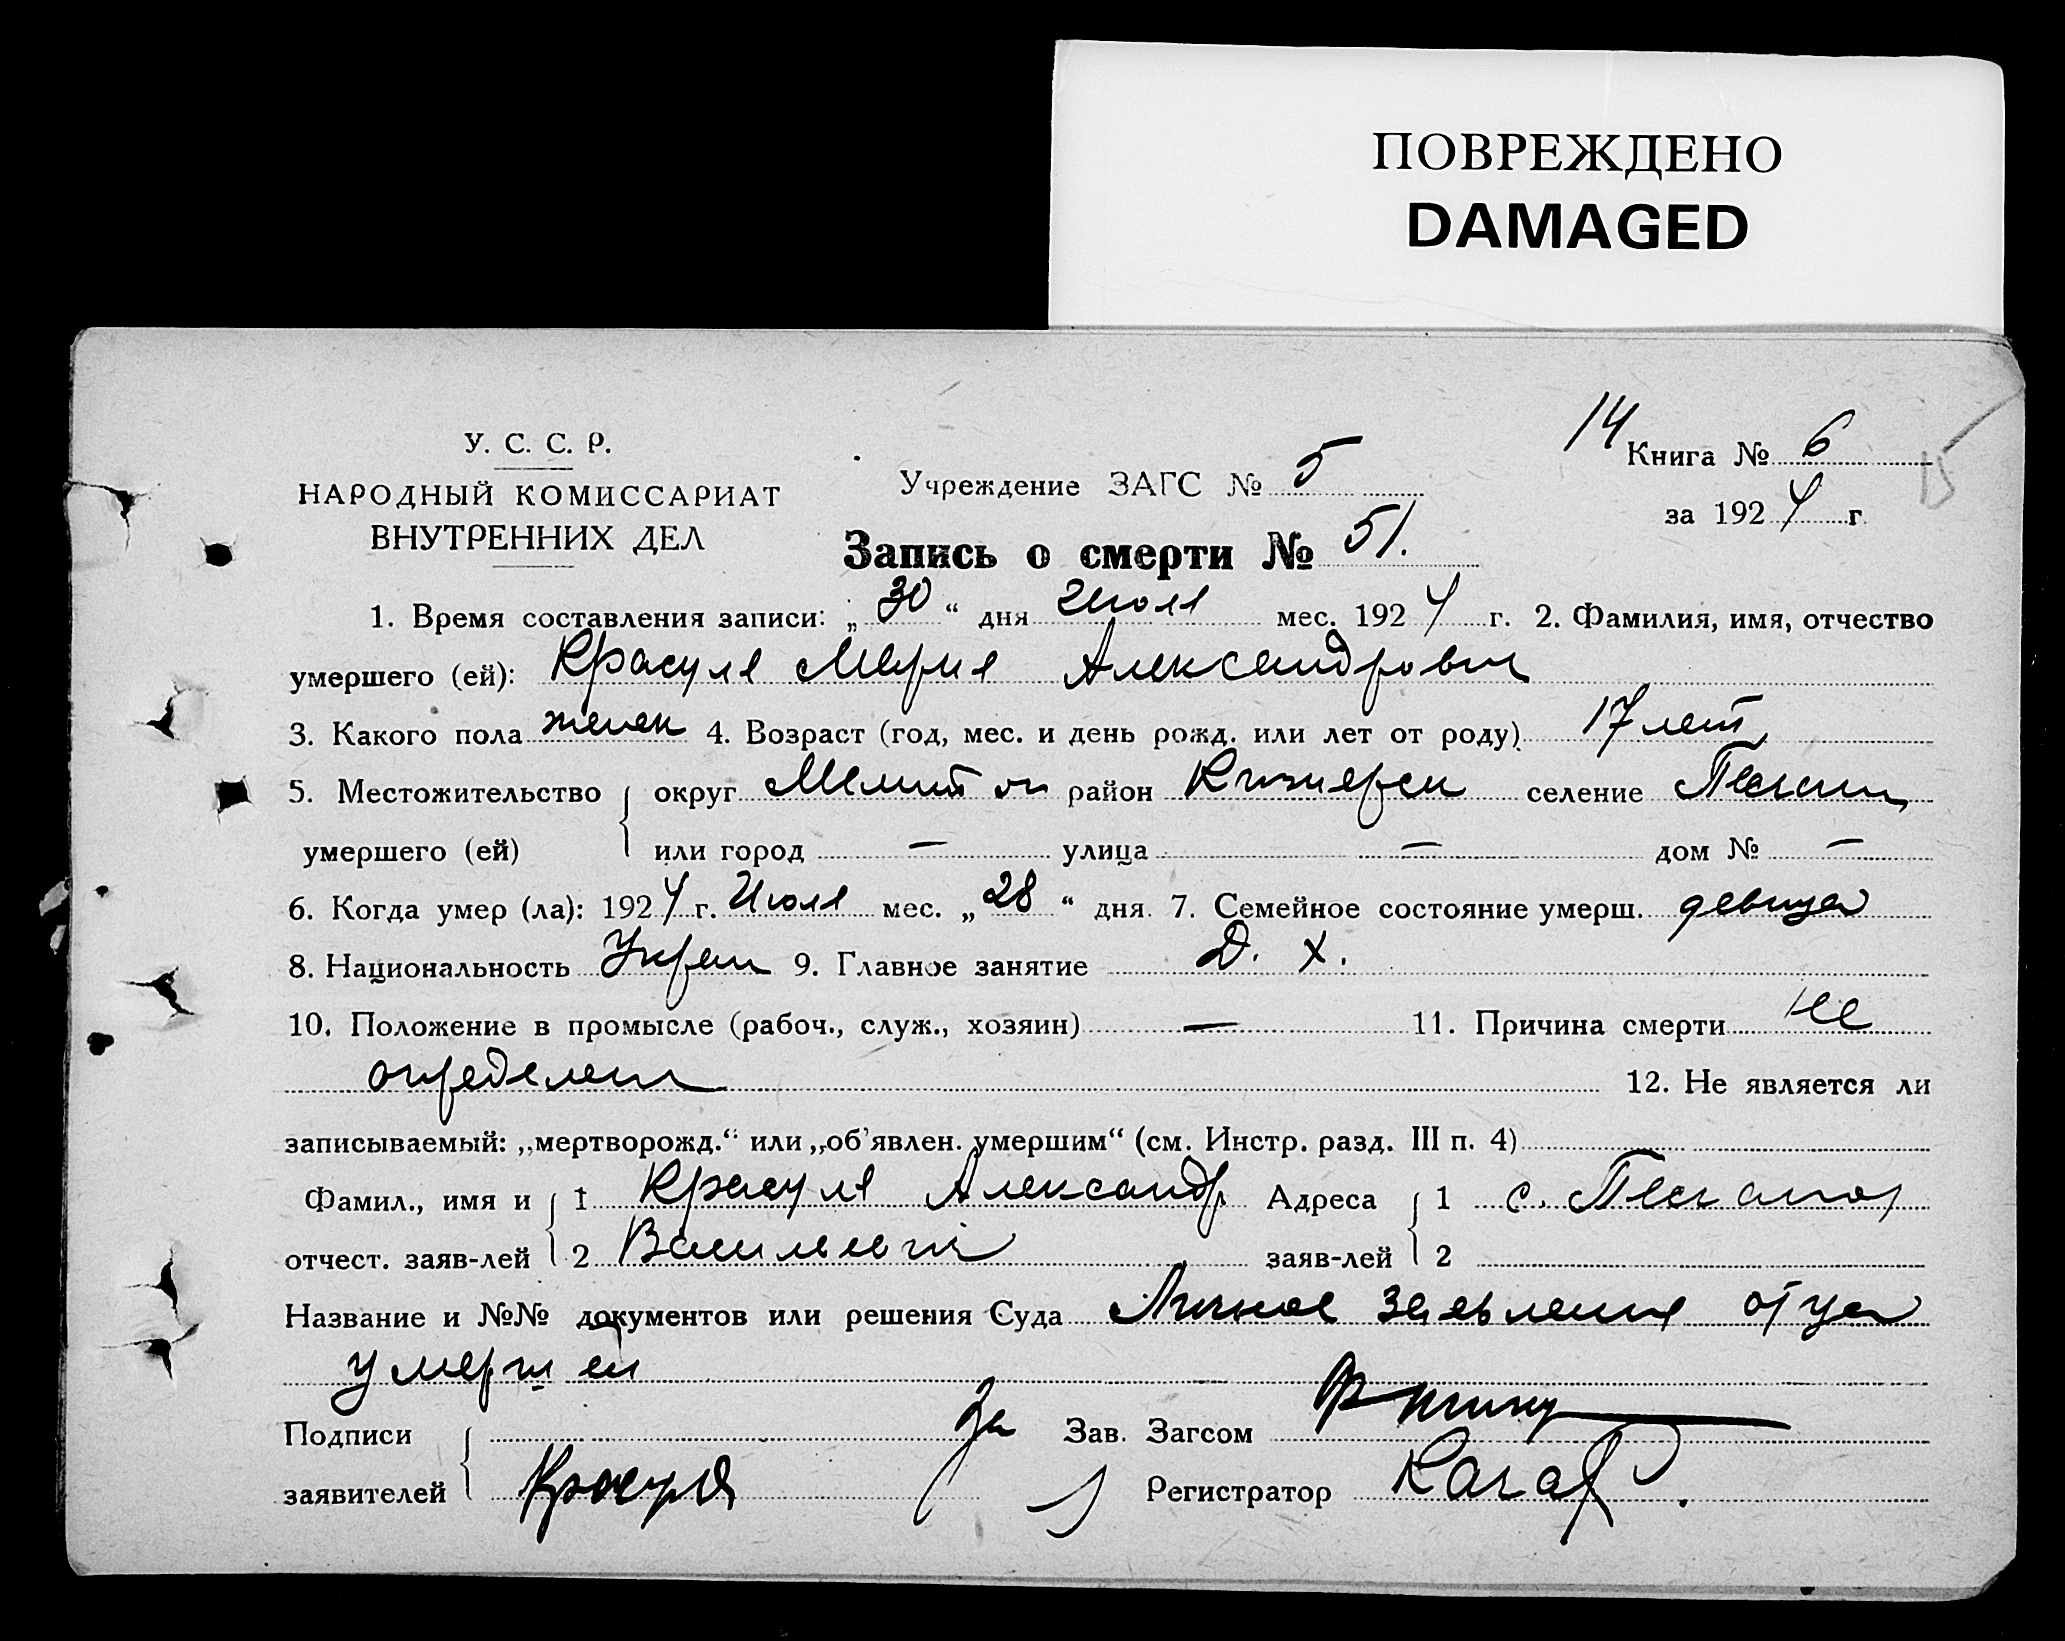 ПОВРЕЖДЕНО
DAMAGED
У. С. С. Р.
НАРОДНЫЙ КОМИССАРИАТ
ВНУТРЕННИХ ДЕЛ
Учреждение ЗАГС № 5
Запись о смерти № 51.
14 Книга № 6
15
за 1924 г.
1. Время составления записи: „30“ дня Июля мес. 1924 г. 2. Фамилия, имя, отчество
умершего (ей): Красуля Мария Александровн
3. Какого пола женск 4. Возраст (год, мес. и день рожд. или лет от роду) 17 лет
5. Местожительство округ Мелит ок район Кизиерск селение
умершего (ей) или город — улица — дом № —
6. Когда умер (ла): 1924 г. Июля мес. „28“ дня. 7. Семейное состояние умерш. девица
8. Национальность Украин 9. Главное занятие Д. Х.
10. Положение в промысле (рабоч., служ., хозяин) — 11. Причина смерти не
определен 12. Не является ли
записываемый: „мертворожд.“ или „об’явлен. умершим“ (см. Инстр. разд. III п. 4)
Фамил., имя и 1 Красуля Александр Адреса 1 с.
отчест. заяв-лей 2 Васильевич заяв-лей 2
Название и №№ документов или решения Суда Личное заявление отца
умершей
Подписи За Зав. Загсом
заявителей Красуля Регистратор